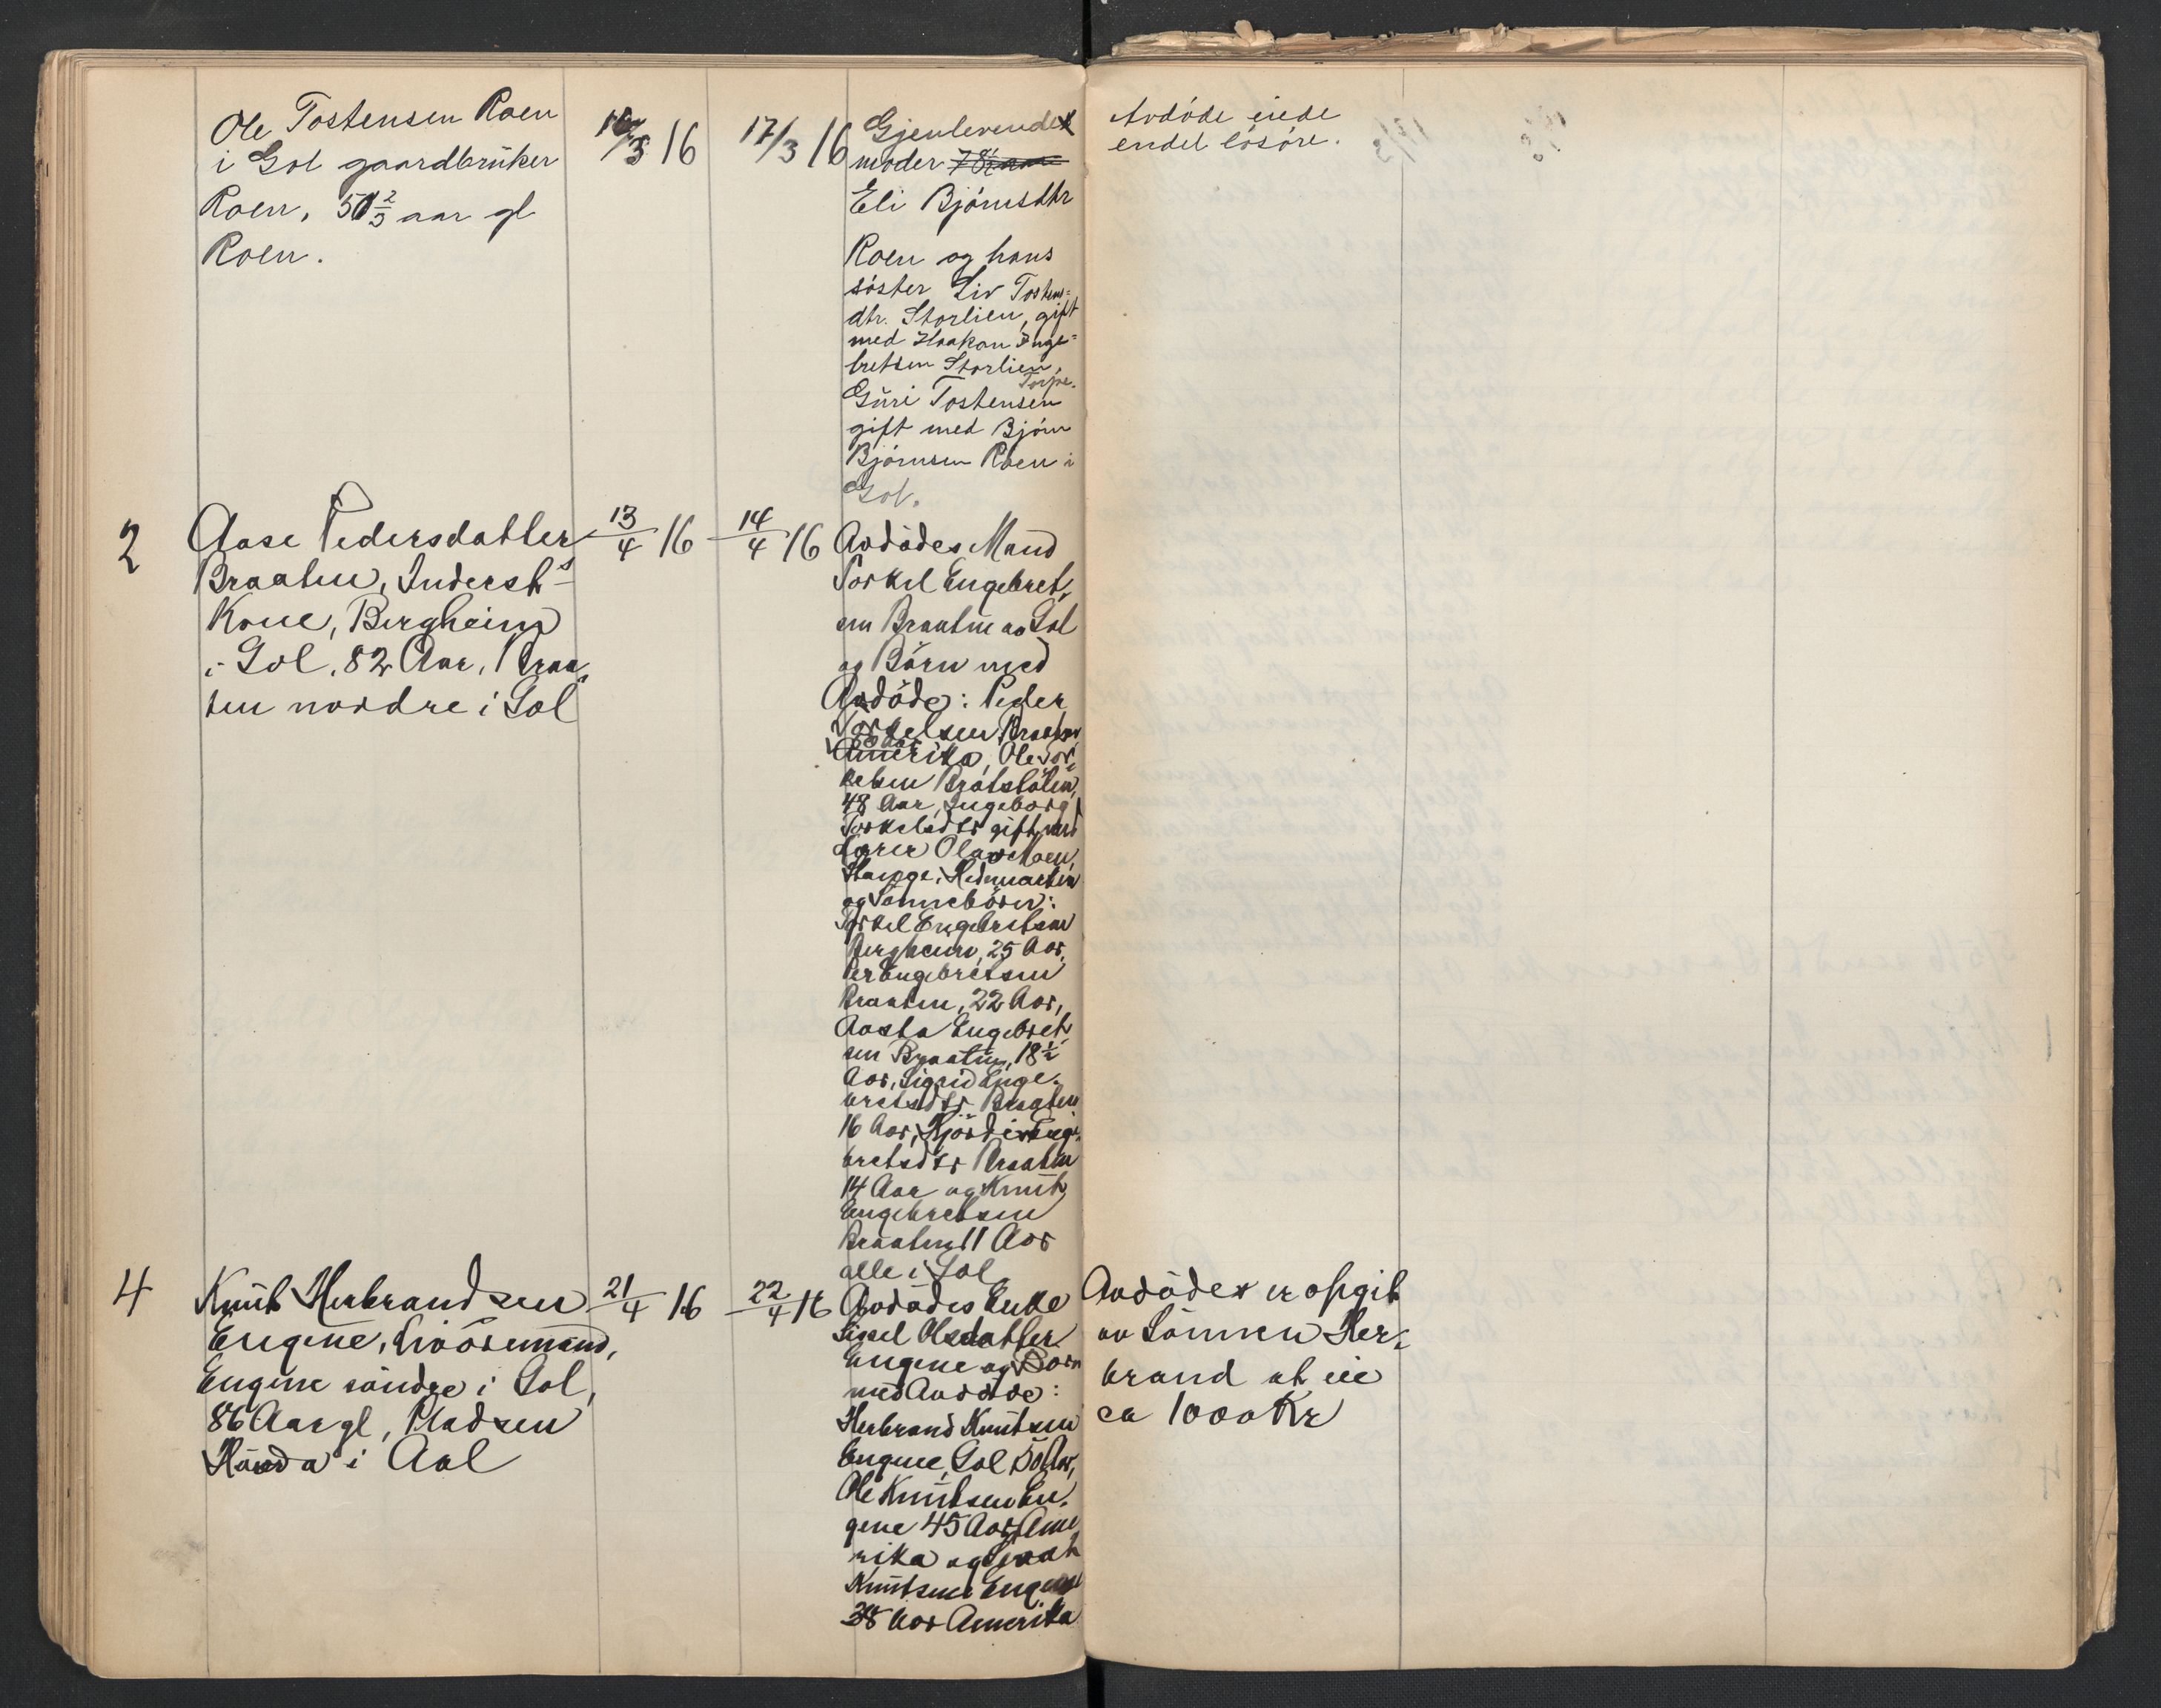 Ole Tostensen Roen
i Gol gaardbrüker
Roen, 50 2/3 aar gl
Roen.
16/3 16
17/3 16
Gjenlevende
moder
Eli Bjørnsdtr
Roen og hans
søster Liv Tostens=
dtr. Storlien, gift
med Haakon Inge=
bretsen Storlien,
Torpe.
Guri Tostensen
gift med Bjørn
Bjørnsen Roen i
Gol.
Avdøde eiede
endel løsøre.
2
Aase Pedersdatter
Braaten, Inderst's
Kone, Bergheim
i Gol, 82 Aar, Braa-
ten nordre i Gol
13/4 16
14/4 16
Avdødes Mand
Torkel Engebret-
sen Braaten av Gol
og Börn med
Avdöde: Peder
Torkelsen Braaten
Amerika, Ole Tor-
kelsen Bråtstölen,
48 Aar, Ingeborg
Torkelsdtr gift med
Lærer Olav Moen,
Stange, Hedemarken
og Sønnebörn:
Torkel Engebretsen
Bergheim, 25 Aar,
Per Engebretsen
Braaten, 22 Aar,
Aasta Engebret-
sen Braaten, 18 ½
Aar, Sigrid Enge-
bretsdtr Braaten
16 Aar, Hjördis Enge-
bretsdtr Braaten
14 Aar og Knut
Engebretsen
Braaten 11 Aar
alle i Gol
4
Knut Herbrandsen
Engene, Livöremand,
Engene söndre i Gol,
86 Aar gl, Pladsen
i Aal
21/4 16
22/4 16
Avdødes Enke
Sissel Olsdatter
Engene og Børn
med Avdöde:
Herbrand Knutsen
Engene, Gol 50 Aar,
Ole Knutsen En-
gene 45 Aar, Ame
rika og
Knutsen Engene
38 Aar Amerika
Avdøde er opgit
av Sønnen Her-
brand at eie
ca 1000 Kr